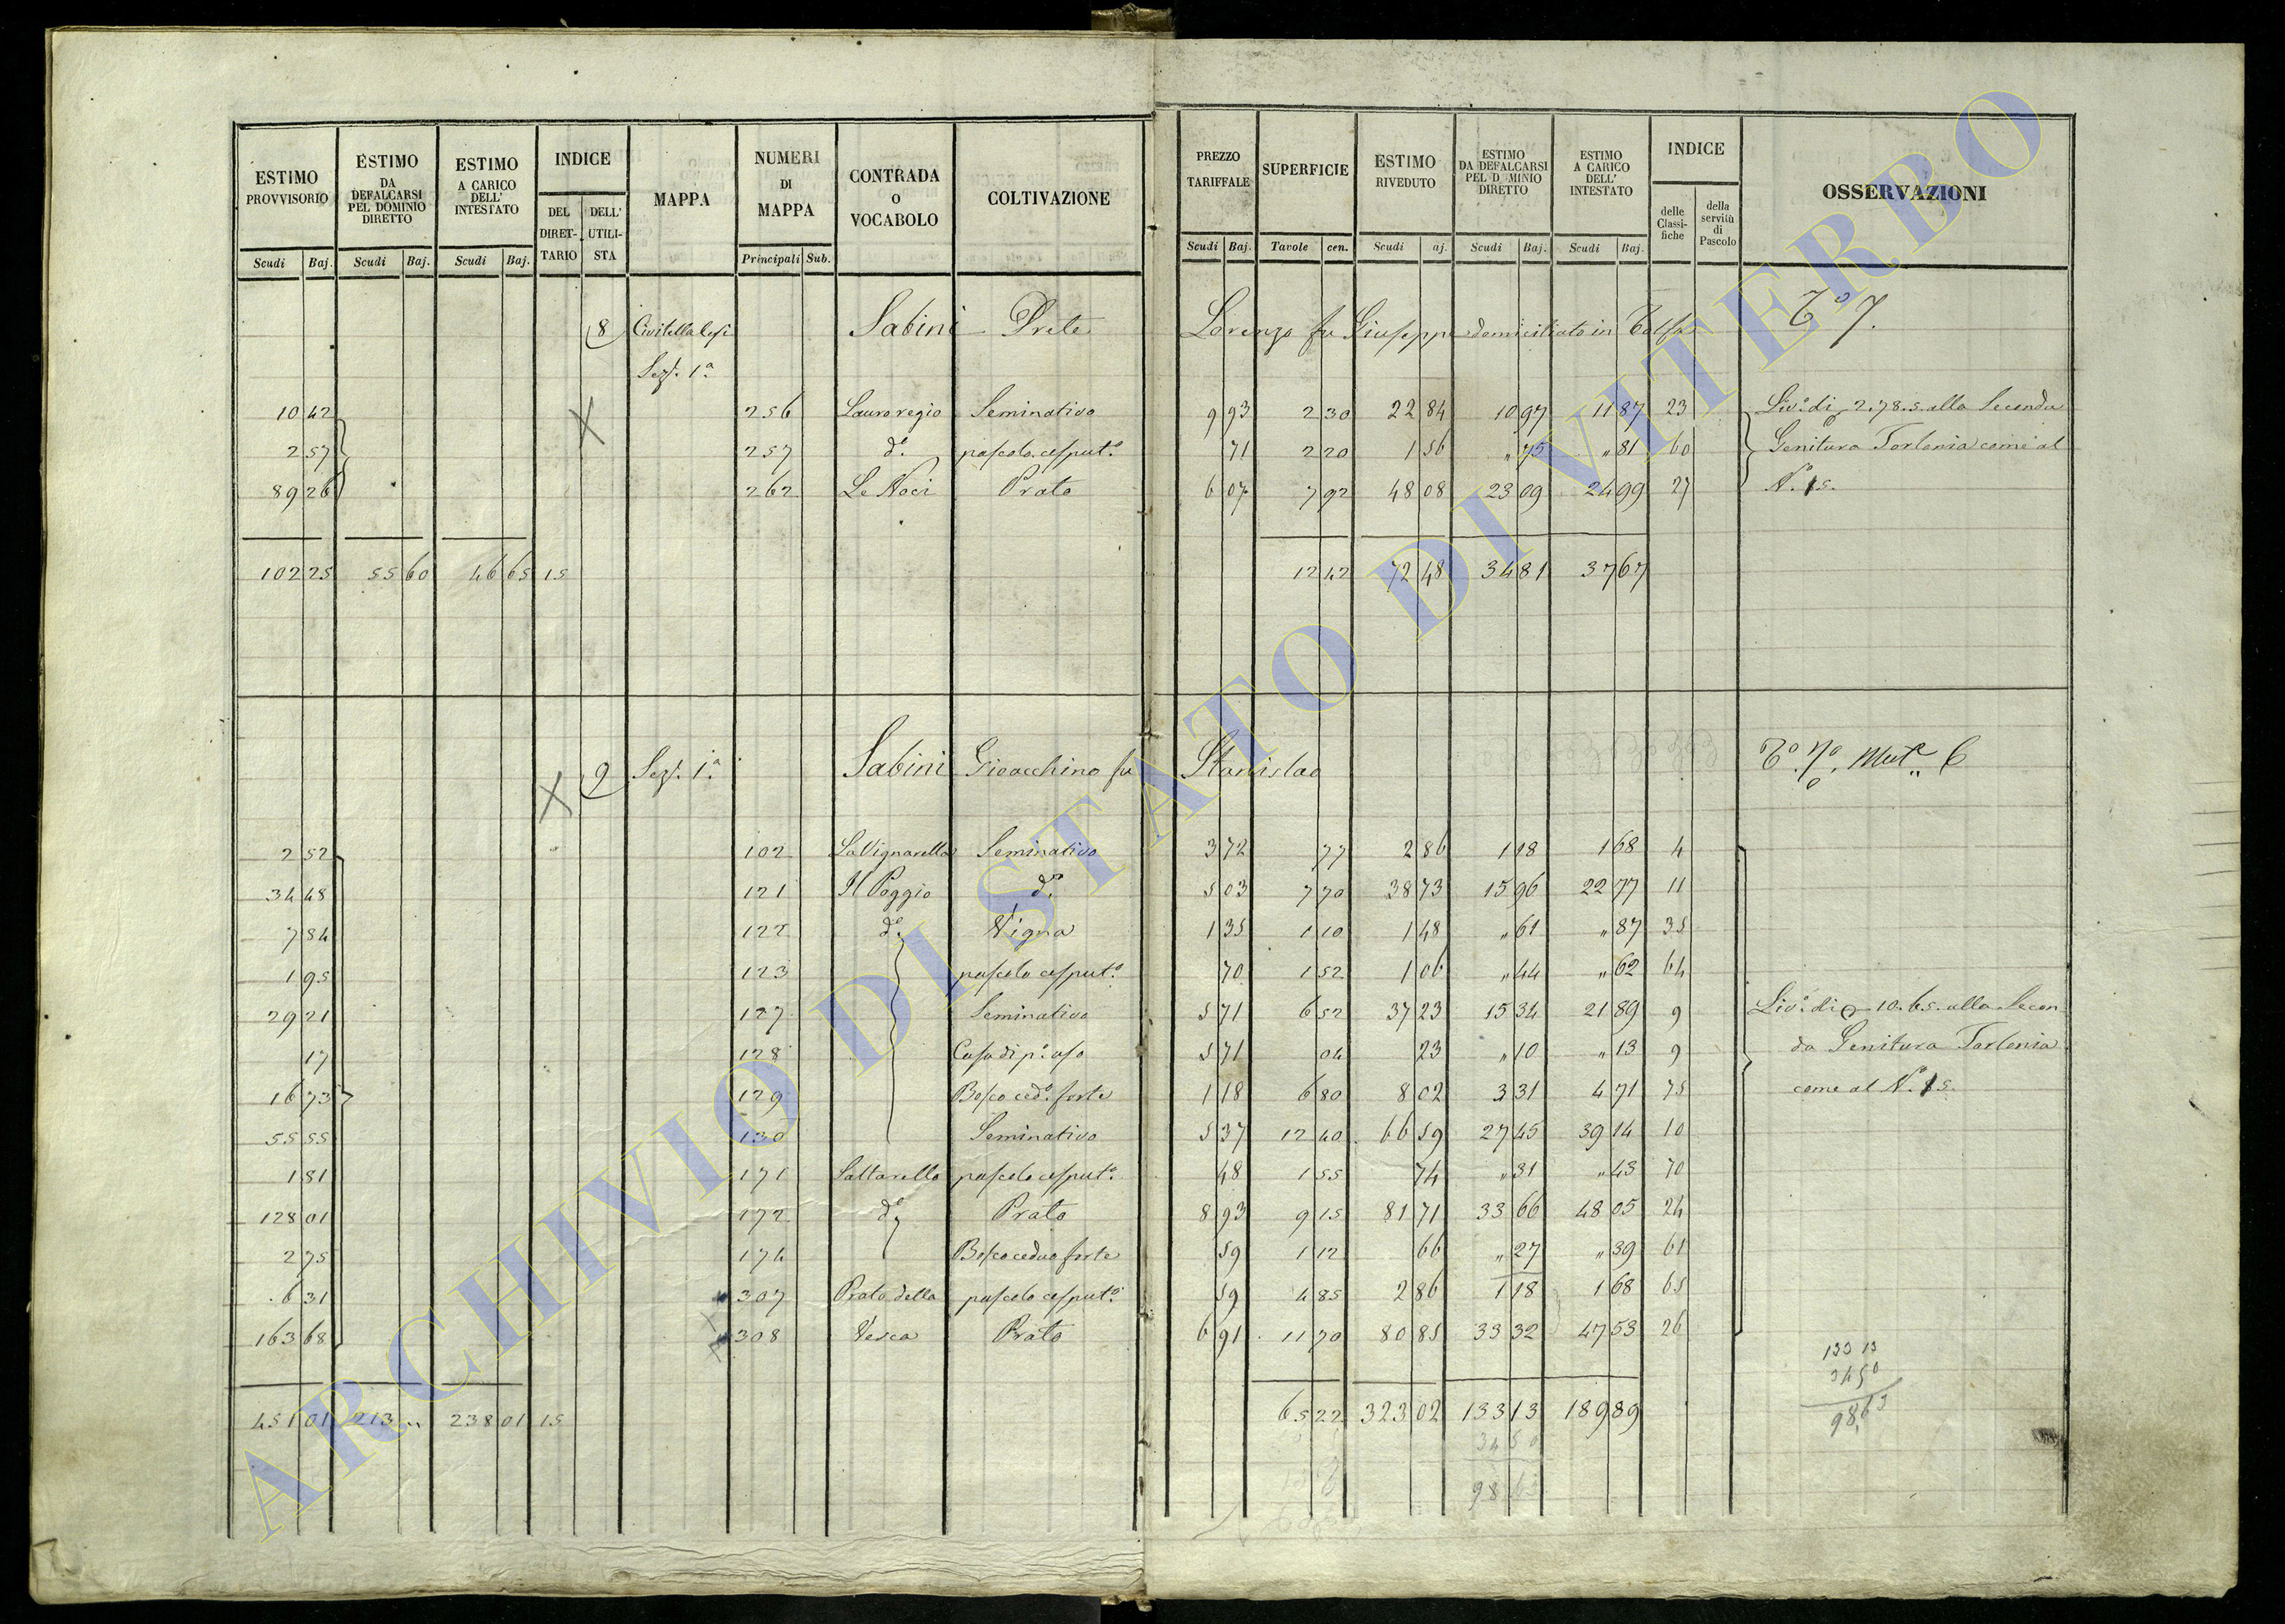 ESTIMO PROVVISORIO | ESTIMO DA DEFALCARSI PEL DOMINIO DIRETTO | ESTIMO A CARICO DELL' INTESTATO | INDICE | MAPPA | NUMERI DI MAPPA | CONTRADA O VOCABOLO | COLTIVAZIONE | PREZZO TARIFFALE | SUPERFICIE | ESTIMO RIVEDUTO | ESTIMO DA DEFALCARSI PEL D MINIO DIRETTO | ESTIMO A CARICO DELL' INTESTATO | INDICE | OSSERVAZIONI
DEL DIRET-TARIO | DELL' UTILI-STA | delle Classi-fiche | della servitù di Pascolo
Scudi | Baj. | Scudi | Baj. | Scudi | Baj. | Principali | Sub. | Scudi | Baj. | Tavole | cen. | Scudi | aj. | Scudi | Baj. | Scudi | Baj.
8 Civitella Cesi Sabini Prete Lorenzo fu Giuseppe domiciliato in Tolfa To 7.
Sez. 1a
10 42 | 256 | Lauroregio | Seminativo | 9 93 | 2 30 | 22 84 | 10 97 | 11 87 | 23 | Livo. di 2.78.5 alla Seconda
2 57 | 257 | do. | pascolo cesputo. | 71 | 2 20 | 1 56 | " 75 | " 81 | 60 | Genitura Torlonia come al
89 26 | 262 | Le Noci | Prato | 6 07 | 7 92 | 48 08 | 23 09 | 24 99 | 27 | No. 15.
102 25 | 55 60 | 46 65 | 15 | 12 42 | 72 48 | 34 81 | 37 67
9 Sez. 1a Sabini Gioacchino fu Stanislao
2 52 | 102 | La Vignarella | Seminativo | 3 72 | 77 | 2 86 | 1 18 | 1 68 | 4
34 48 | 121 | Il Poggio | do. | 5 03 | 7 70 | 38 73 | 15 96 | 22 77 | 11
7 84 | 122 | do. | Vigna | 1 35 | 1 10 | 1 48 | " 61 | " 87 | 35
1 95 | 123 | pascolo cesputo. | 70 | 1 52 | 1 06 | " 44 | " 62 | 64
29 21 | 127 | Seminativo | 5 71 | 6 52 | 37 23 | 15 34 | 21 89 | 9 | Livo. di 10.65. alla Secon
17 | 128 | Casa di po. uso | 5 71 | 04 | 23 | " 10 | " 13 | 9 | da Genitura Torlonia
16 73 | 129 | Bosco cedo. forte | 1 18 | 6 80 | 8 02 | 3 31 | 4 71 | 75 | come al No. 15.
55 55 | 130 | Seminativo | 5 37 | 12 40 | 66 59 | 27 45 | 39 14 | 10
1 81 | 171 | Saltarello | pascolo cesputo. | 48 | 1 55 | 74 | " 31 | " 43 | 70
128 01 | 172 | do. | Prato | 8 93 | 9 15 | 81 71 | 33 66 | 48 05 | 24
2 75 | 174 | Bosco ceduo forte | 59 | 1 12 | 66 | " 27 | " 39 | 61
6 31 | 307 | Prato della | pascolo cesputo. | 59 | 4 85 | 2 86 | 1 18 | 1 68 | 65
163 68 | 308 | Vesca | Prato | 6 91 | 11 70 | 80 85 | 33 32 | 47 53 | 26
133 13
34 50
98,63
451 01 | 213 " | 238 01 | 15 | 65 22 | 323 02 | 133 13 | 189 89
34 50
98 63
ARCHIVIO DI STATO DI VITERBO